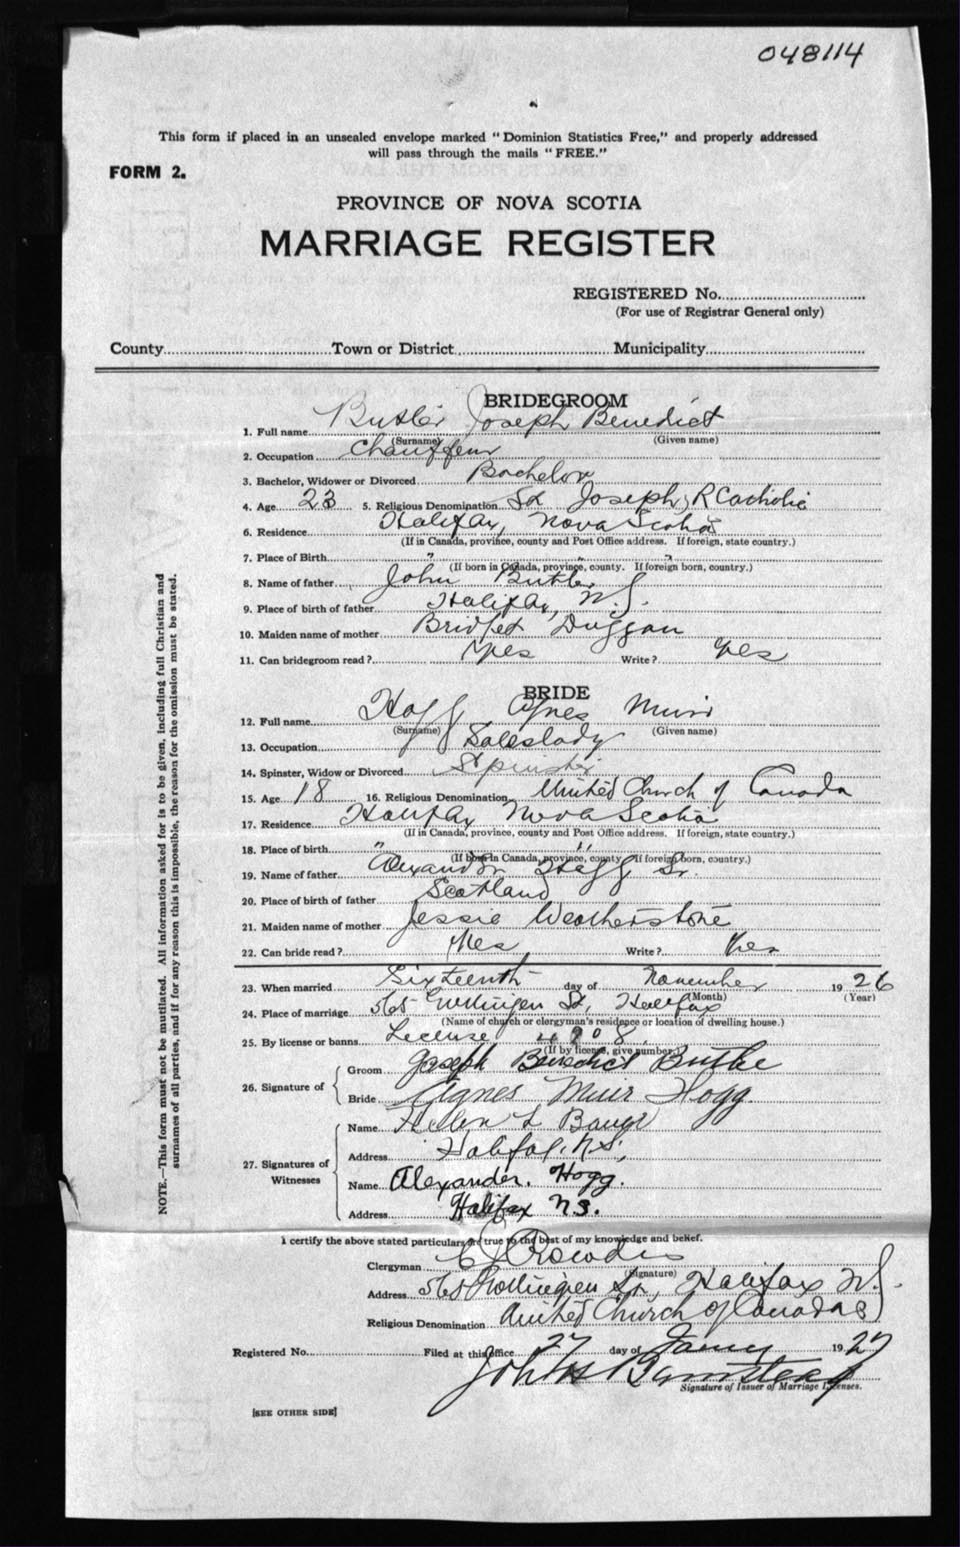 048114
This form if placed in an unsealed envelope marked "Dominion Statistics Free," and properly addressed
will pass through the mails "FREE."
FORM 2.
PROVINCE OF NOVA SCOTIA
MARRIAGE REGISTER
REGISTERED No.
(For use of Registrar General only)
County Town or District Municipality
BRIDEGROOM
1. Full name Butler Joseph Benedict
(Surname) (Given name)
2. Occupation Chauffeur
3. Bachelor, Widower or Divorced Bachelor
4. Age 23 5. Religious Denomination St Joseph, R Catholic
6. Residence Halifax, Nova Scotia
(If in Canada, province, county and Post Office address. If foreign, state country.)
7. Place of Birth " " "
(If born in Canada, province, county. If foreign born, country.)
8. Name of father John Butler
9. Place of birth of father Halifax, N.S.
10. Maiden name of mother Bridget Duggan
11. Can bridegroom read? Yes Write? Yes
BRIDE
12. Full name Hogg Agnes Muir
(Surname) (Given name)
13. Occupation Saleslady
14. Spinster, Widow or Divorced Spinster
15. Age 18 16. Religious Denomination United Church of Canada
17. Residence Halifax Nova Scotia
(If in Canada, province, county and Post Office address. If foreign, state country.)
18. Place of birth " "
(If born in Canada, province, county If foreign born, country.)
19. Name of father Alexander Hogg Sr.
20. Place of birth of father Scotland
21. Maiden name of mother Jessie Weatherstone
22. Can bride read? Yes Write? Yes
23. When married Sixteenth day of November 1926
(Month) (Year)
24. Place of marriage 565 St, Halifax
(Name of church or clergyman's residence or location of dwelling house.)
25. By license or banns License 4908
(If by license, give number)
26. Signature of
Groom Joseph Benedict Butler
Bride Agnes Muir Hogg
27. Signatures of Witnesses
Name Helen L
Address Halifax. N.S.,
Name Alexander. Hogg.
Address Halifax N.S.
I certify the above stated particulars are true to the best of my knowledge and belief.
Clergyman
(Signature)
Address 565 St, Halifax N.S.
Religious Denomination United Church of Canada
Registered No. Filed at this office 27 day of Jany 1927
Signature of Issuer of Marriage Licenses.
[SEE OTHER SIDE]
NOTE.—This form must not be mutilated. All information asked for is to be given, including full Christian and
surnames of all parties, and if for any reason this is impossible, the reason for the omission must be stated.